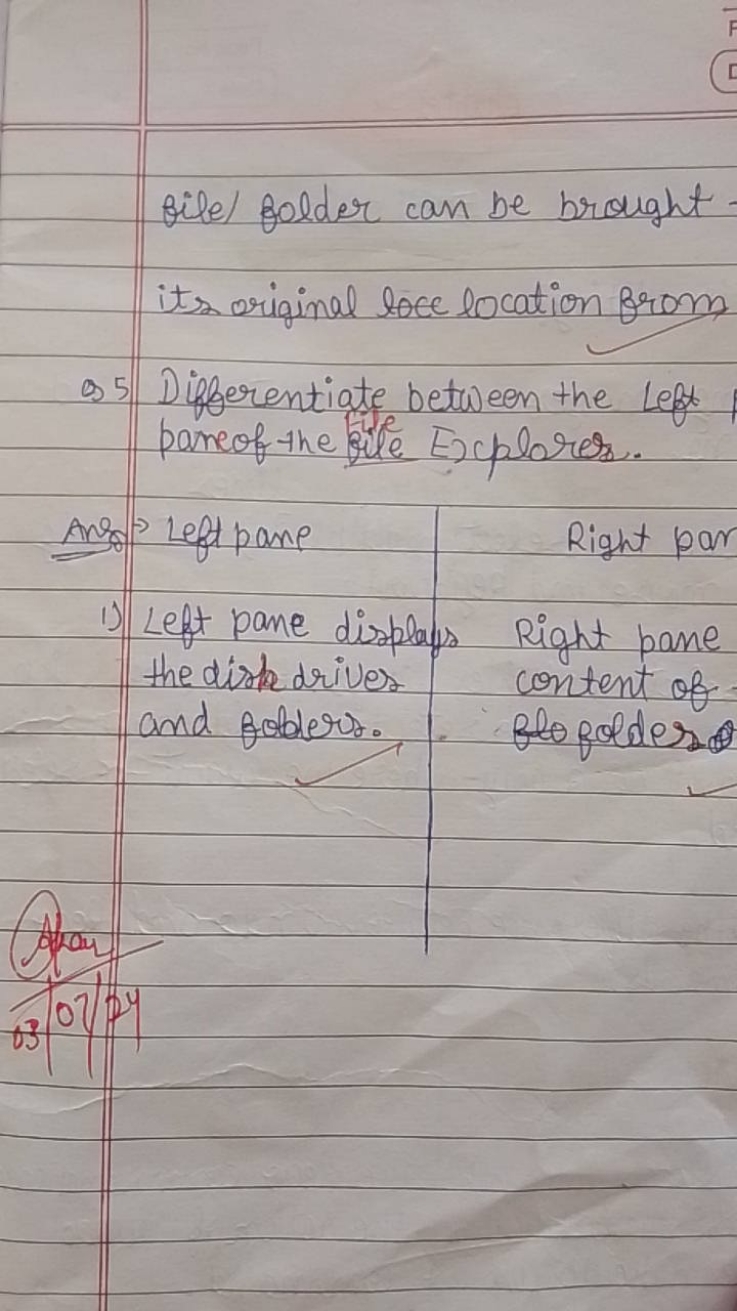 file/ folder can be brought
its original loce location from
Q 5 Differentiate between the Left
pane of the file File Explorer.
Ans → Left pane Right pan
1) Left pane displays Right pane
the disk drives content of
and folders. flo folder
03/07/24